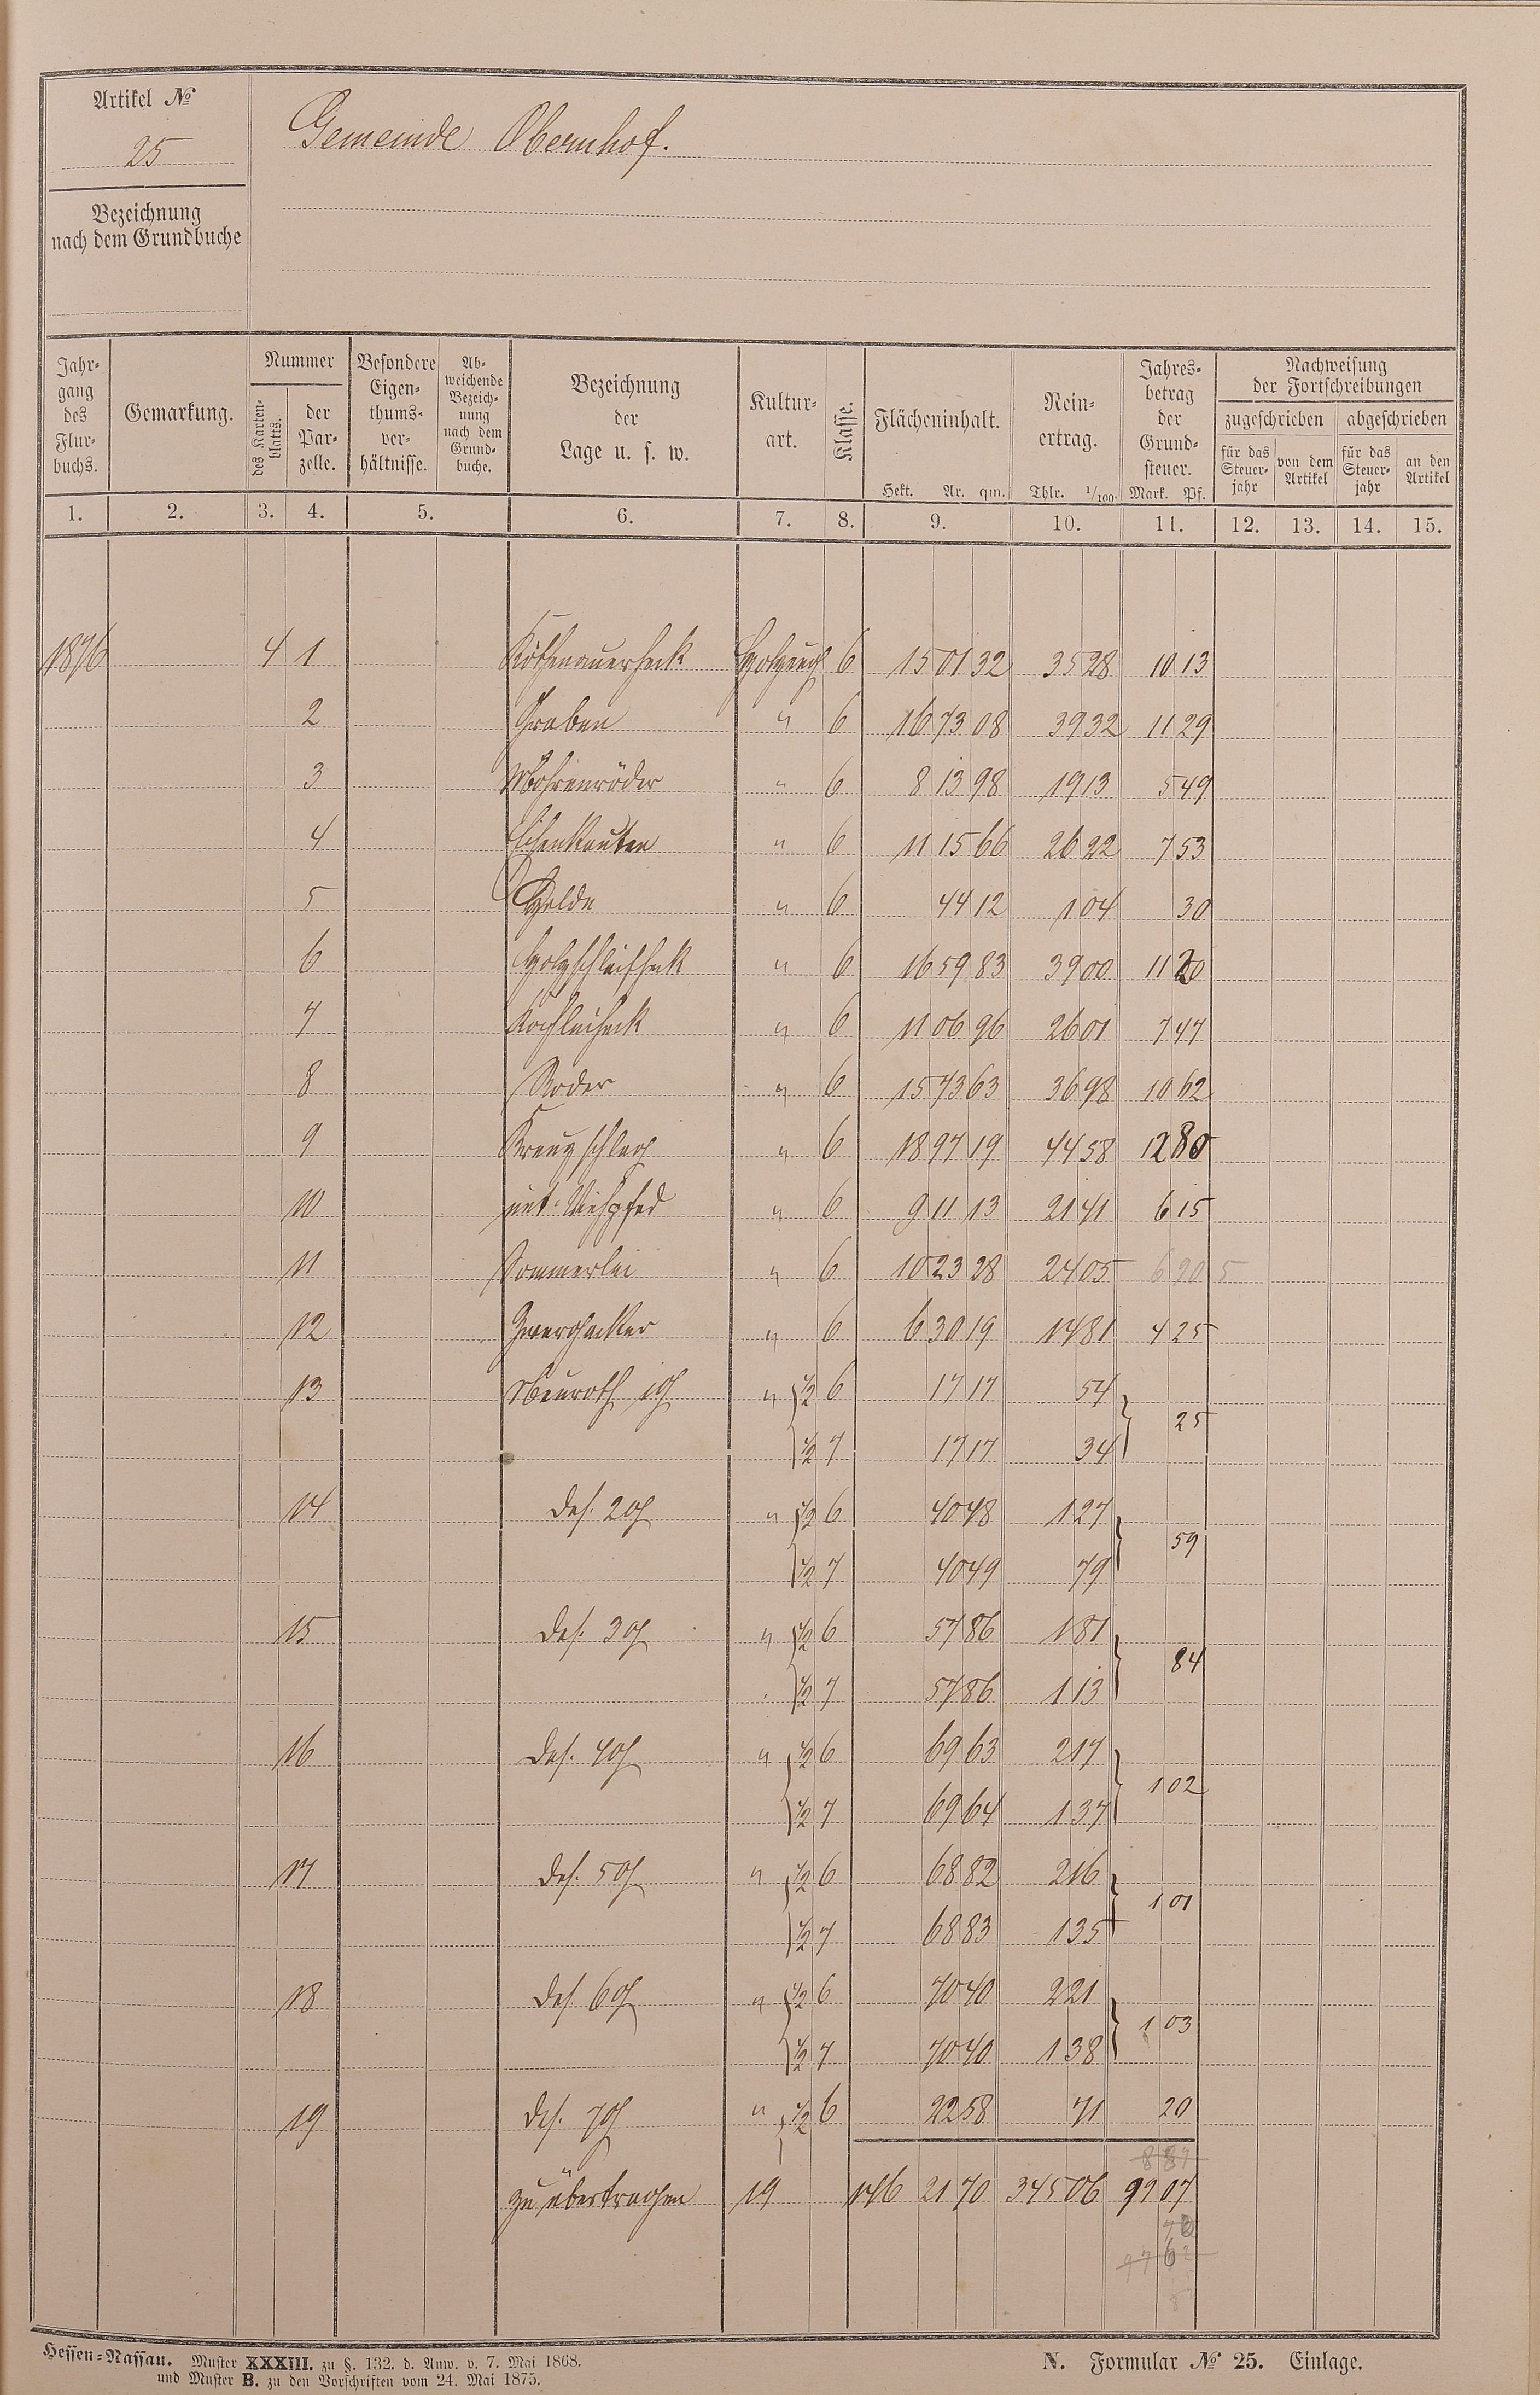 Artikel № 25
Gemeinde Obernhof.
Bezeichnung
nach dem Grundbuche
Jahr-gang des Flur-buchs. Gemarkung. Nummer des Karten-blatts. der Par-zelle. Besondere Eigen-thums-ver-hältnisse. Ab-weichende Bezeich-nung nach dem Grund-buche. Bezeichnung der Lage u. s. w. Kultur-art. Klasse. Flächeninhalt. Hekt. Ar. qm. Rein-ertrag. Thlr. 1/100. Jahres-betrag der Grund-steuer. Mark. Pf. Nachweisung der Fortschreibungen zugeschrieben für das Steuer-jahr von dem Artikel abgeschrieben für das Steuer-jahr an den Artikel
1. 2. 3. 4. 5. 6. 7. 8. 9. 10. 11. 12. 13. 14. 15.
1876 4 1 Holzung 6 15 01 32 35 28 10 13
2 Graben " 6 16 73 08 39 32 11 29
3 " 6 8 13 98 19 13 5 49
4 Eschenkauten " 6 11 15 66 26 22 7 53
5 Helde " 6 44 12 1 04 30
6 Holzschleifheck " 6 16 59 83 39 00 11 20
7 Kochleiheck " 6 11 06 96 26 01 7 47
8 Roder " 6 15 73 63 36 98 10 62
9 Kreuzschlag " 6 18 97 19 44 58 12 80
10 unt. Viehpfad " 6 9 11 13 21 41 6 15
11 Sommerlei " 6 10 23 28 24 05 6 90 5
12 Zwergacker " 6 6 30 19 14 81 4 25
13 Neuroth 1g " 1/2 6 17 17 54
1/2 7 17 17 34 25
14 das. 2g " 1/2 6 40 48 1 27
1/2 7 40 49 79 59
15 das. 3g " 1/2 6 57 86 1 81
1/2 7 57 86 1 13 84
16 das. 4g " 1/2 6 69 63 2 17
1/2 7 69 64 1 37 1 02
17 das. 5g " 1/2 6 68 82 2 16
1/2 7 68 83 1 35 1 01
18 das. 6g " 1/2 6 70 40 2 21
1/2 7 70 40 1 38 1 03
19 das. 7g " 1/2 6 22 58 71 20
zu übertragen 19 146 21 70 345 06 99 07
Hessen-Nassau. Muster XXXIII. zu §. 132. d. Anw. v. 7. Mai 1868.
und Muster B. zu den Vorschriften vom 24. Mai 1875.
N. Formular № 25. Einlage.